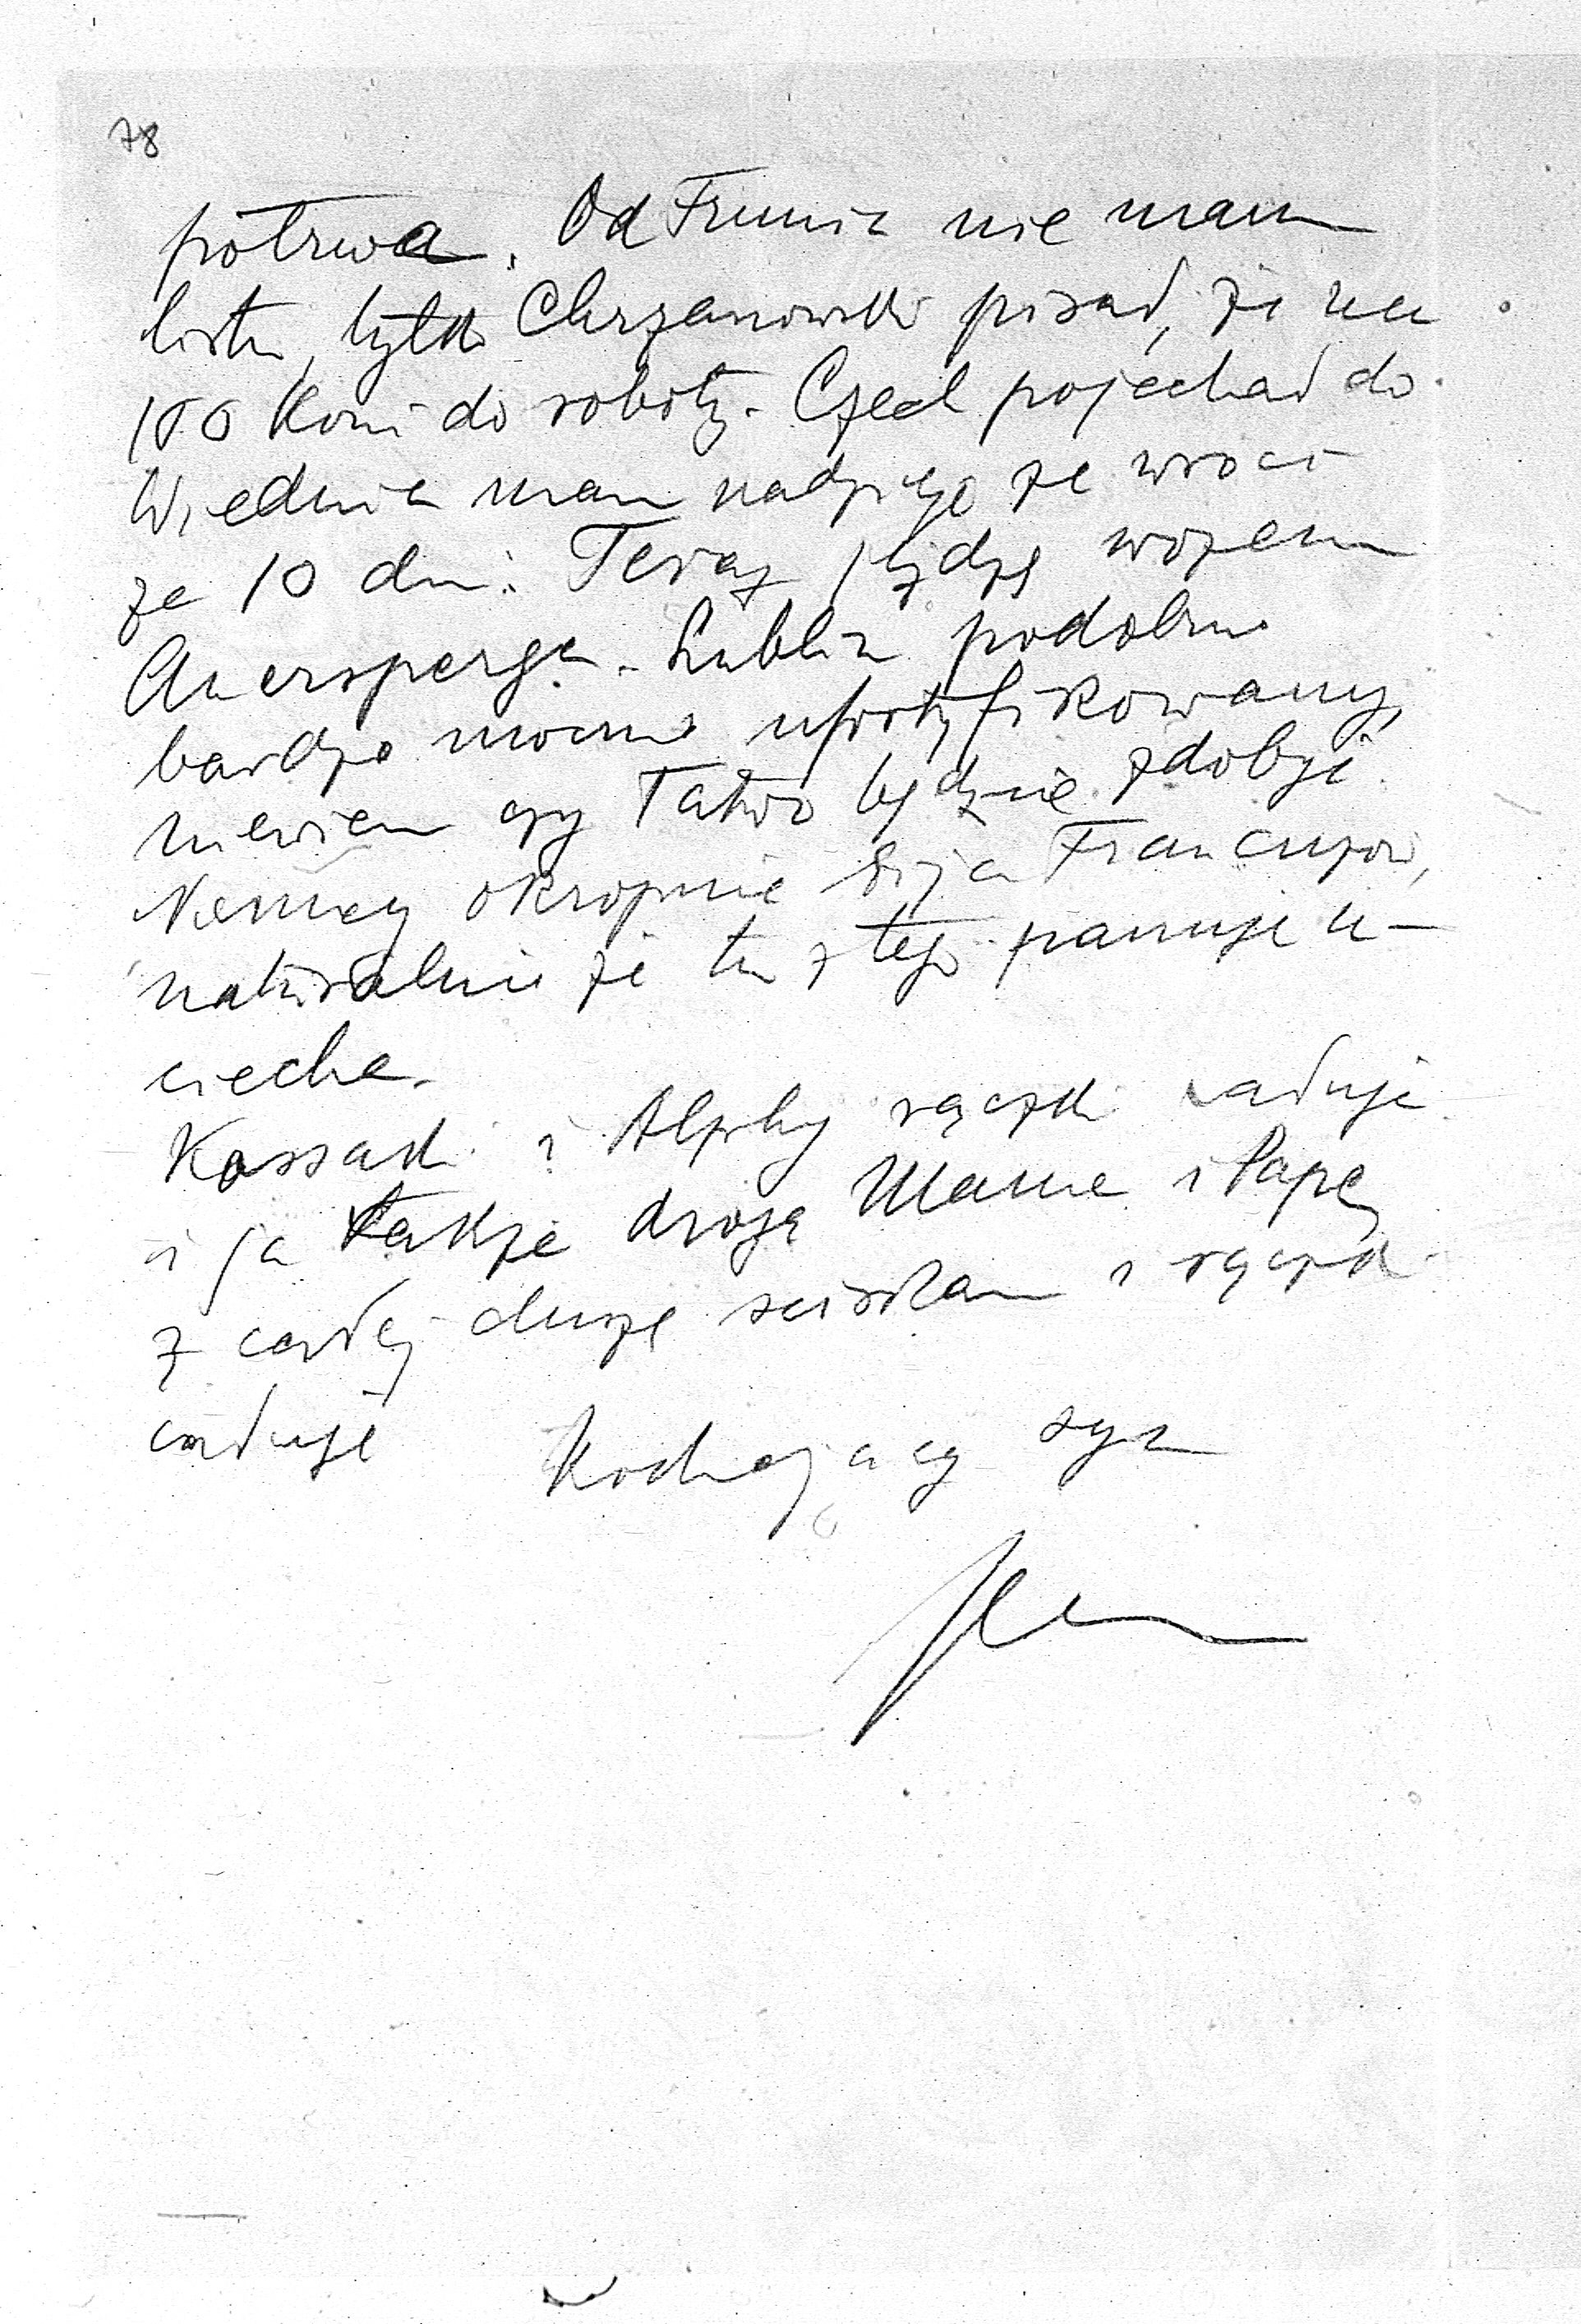 78
potrwa. Od Frunia nie mam
listu, tylko Chrzanowski pisał, że ma
100 koni do roboty. Czech pojechał do
Wiednia mam nadzieję że wróci
za 10 dni. Teraz jeżdżę wozem
Auersperga. Lublin podobno
bardzo mocno ufortyfikowany,
niewiem czy łatwo będzie zdobyć.
Niemcy okropnie biją Francuzów,
naturalnie że tu z tego panuje u-
ciecha.
Kossak i rączki całuje
i ja także drogą Mamę i Papę
z całej duszy ściskam i rączki
całuję Kochający syn